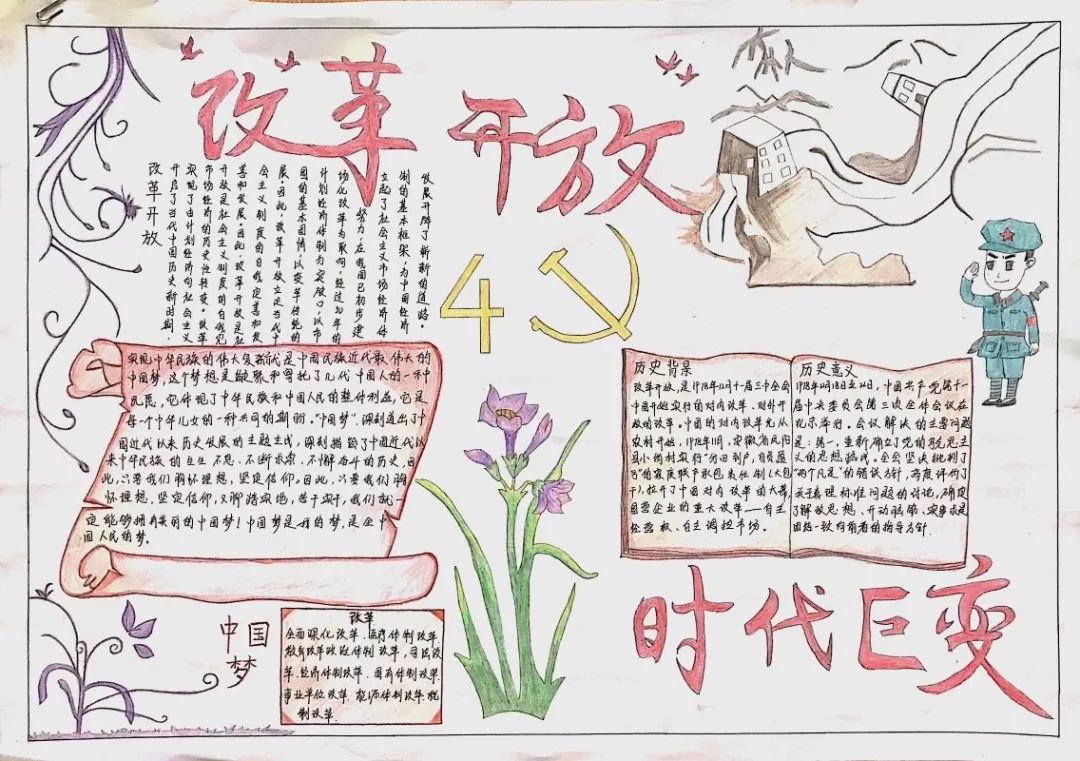 改革 开放
改革开放
开启了当代中国历史新时期.
实现了由计划经济向社会主义
市场经济的历史性转变。改革
开放是社会主义制度的自我完
善和发展。因此,改革开放是社
会主义制度的自我完善和发
展。因此,改革开放立足当代中
国的基本国情,以变革传统的
计划经济体制为突破口,以市
场化改革为取向,经过30年的
努力,在我国已初步建
立起了社会主义市场经济体
制的基本框架,为中国经济
发展开辟了崭新的道路。
4
实现中华民族的伟大复兴是中国民族近代最伟大的
中国梦,这个梦想是凝聚和寄托了几代中国人的一种
夙愿,它体现了中华民族和中国人民的整体利益,它是
每一个中华儿女的一种共同的期盼,"中国梦"深刻道出了中
国近代以来历史发展的主题主线,深刻描绘了中国近代以
来中华民族的生生不息、不断求索、不懈奋斗的历史,因
此,只要我们胸怀理想,坚定信仰。因此,只要我们胸
怀理想,坚定信仰,又脚踏实地,苦干实干,我们就一
定能够拥有美丽的中国梦!中国梦是我的梦,是全中
国人民的梦。
历史背景
改革开放,是1978年12月十一届三中全会
中国开始实行的对内改革、对外开
放的政策。中国的对内改革先从
农村开始,1978年11月,安徽省凤阳
县小岗村实行"分田到户,自负盈
亏"的家庭联产承包责任制(大包
干),拉开了中国对内改革的大幕,
国营企业的重大改革——自主
经营权、自主调控市场。
历史意义
1978年12月18日至22日,中国共产党第十一
届中央委员会第三次全体会议在
北京举行。会议解决的主要问题
是:第一,重新确立了党的马克思主
义的思想路线。全会坚决批判了
"两个凡是"的错误方针,高度评价了
关于真理标准问题的讨论,确定
了解放思想、开动脑筋、实事求是
团结一致向前看的指导方针.
中国
梦
改革
全面深化改革、医疗体制改革、
教育改革政治体制改革、司法改
革、经济体制改革、国有体制改革、
事业单位改革、
制改革.
时代巨变